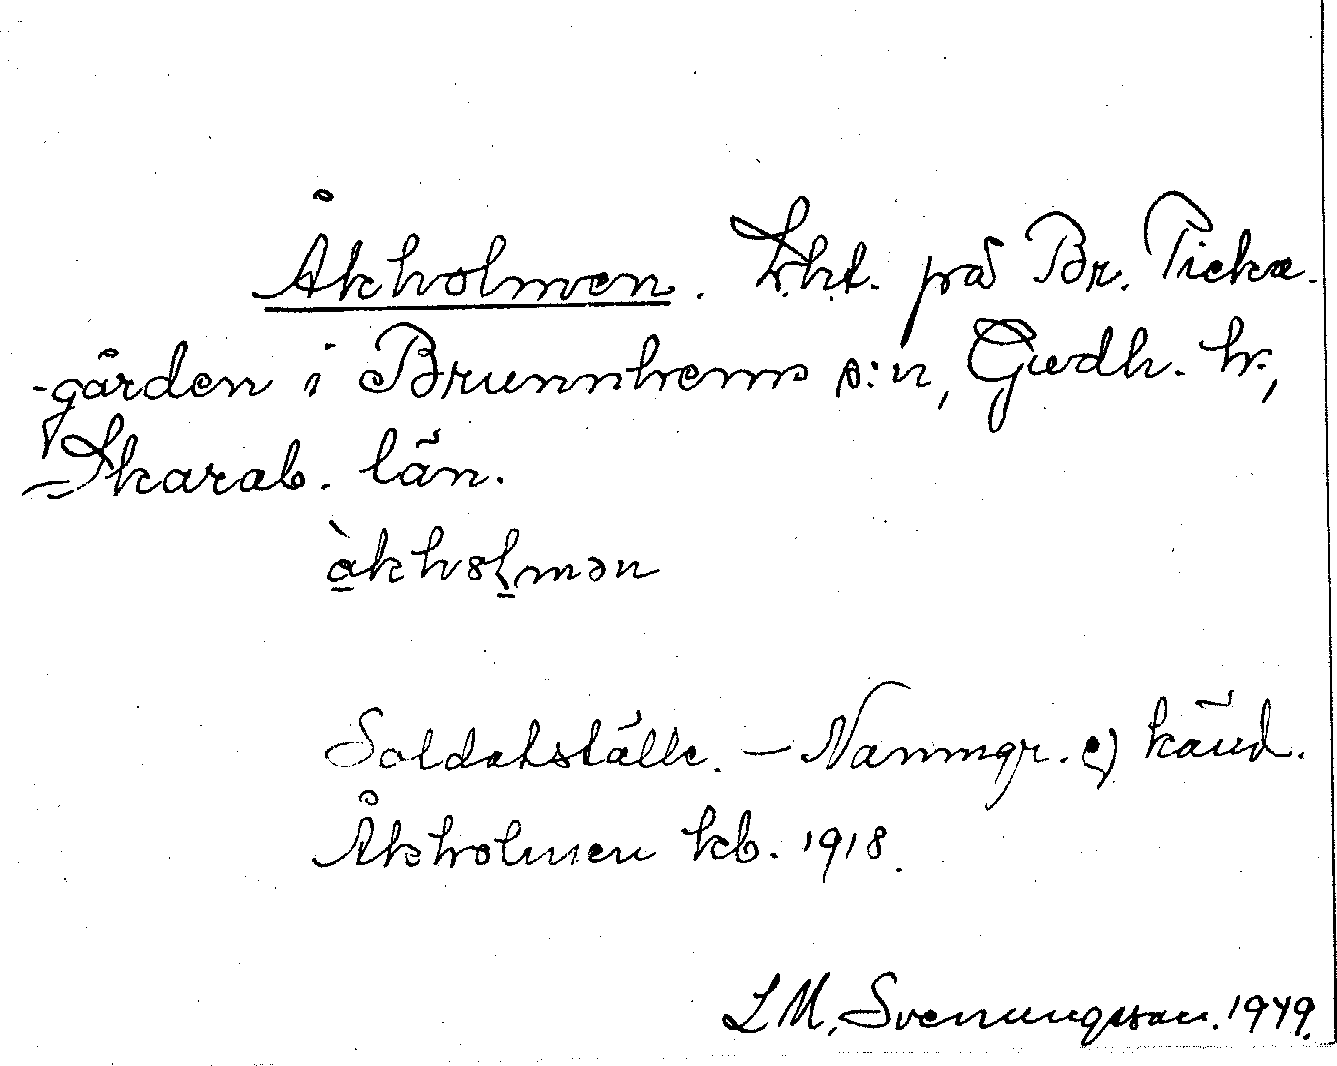 Åkholmen. Lht. på Br. Picka-
-gården i Brunnhems s:n, Gudh. hr,
Skarab. län.
àkhoḻmən
Soldatställe. – Namngr. ej känd.
Åkholmen kb. 1918.
L M. Svenungsson. 1949.